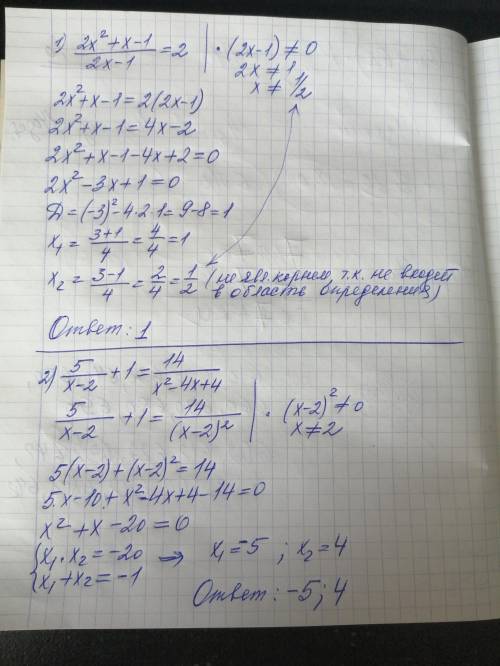 1) (2x²+x-1)/(2x-1) = 2 | · (2x-1) ≠ 0
2x ≠ 1
x ≠ 1/2
2x²+x-1=2(2x-1)
2x²+x-1=4x-2
2x²+x-1-4x+2=0
2x²-3x+1=0
Д=(-3)²-4·2·1=9-8=1
x₁ = (3+1)/4 = 4/4 = 1
x₂ = (3-1)/4 = 2/4 = 1/2 (не явл. корнем, т.к. не входит
в область определения)
Ответ: 1
2) 5/(x-2) + 1 = 14/(x²-4x+4)
5/(x-2) + 1 = 14/(x-2)² | · (x-2)² ≠ 0
x ≠ 2
5(x-2)+(x-2)²=14
5x-10+x²-4x+4-14=0
x²+x-20=0
{x₁·x₂=-20 ⇒ x₁=-5 ; x₂=4
{x₁+x₂=-1
Ответ: -5; 4